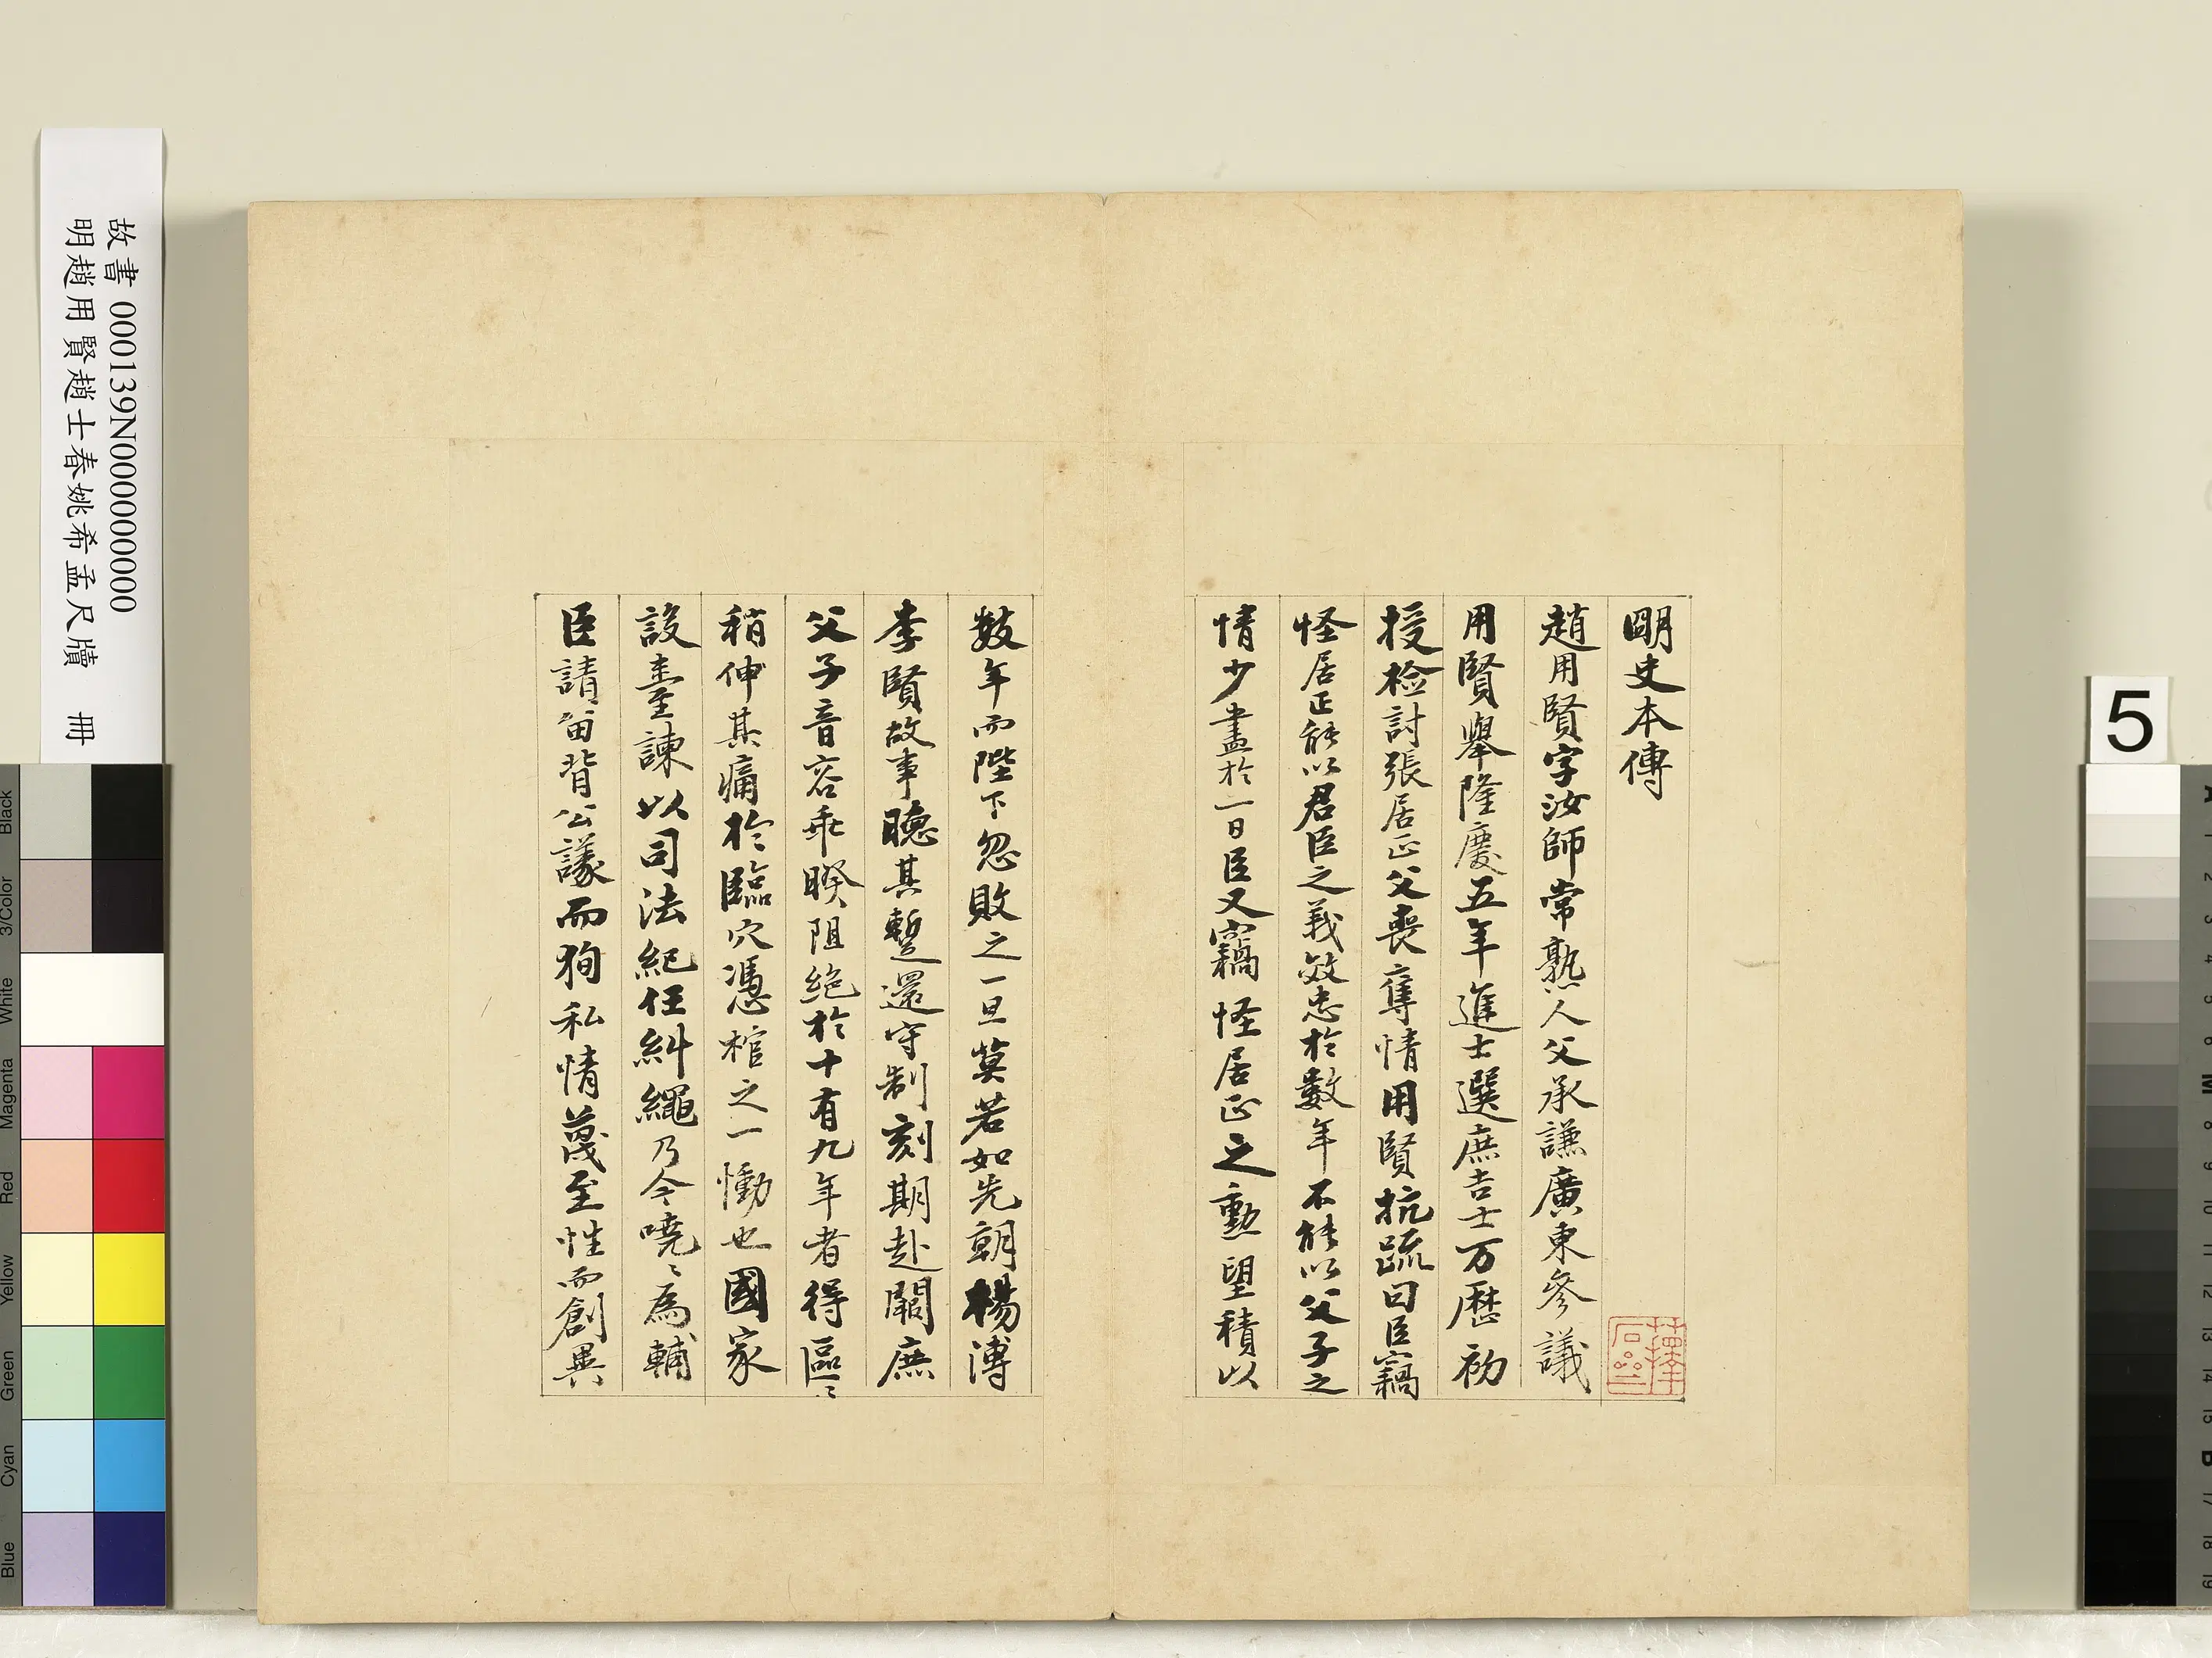 明史本傳
趙用賢字汝師常熟人父承謙廣東參議
用賢舉隆慶五年進士選庶吉士万歷初
授檢討張居正父喪奪情用賢抗疏曰臣竊
怪居正能以君臣之義效忠於數年不能以父子之
情少盡於一日臣又竊怪居正之勳望積以
數年而陛下忽敗之一旦莫若如先朝楊溥
李賢故事聽其暫還守制刻期赴闕庶
父子音容乖暌阻絕於十有九年者得區〻
稍伸其痛於臨穴憑棺之一慟也國家
設臺諫以司法紀任糾繩乃今嘵〻為輔
臣請留背公議而狥私情蔑至性而創異
故書 000139N000000000
明趙用賢趙士春姚希孟尺牘 冊
5
Black
3/Color
White
Magenta
Red
Yellow
Green
Cyan
Blue
A
1
2
3
4
5
6
M
8
9
10
11
12
13
14
15
B
17
18
19